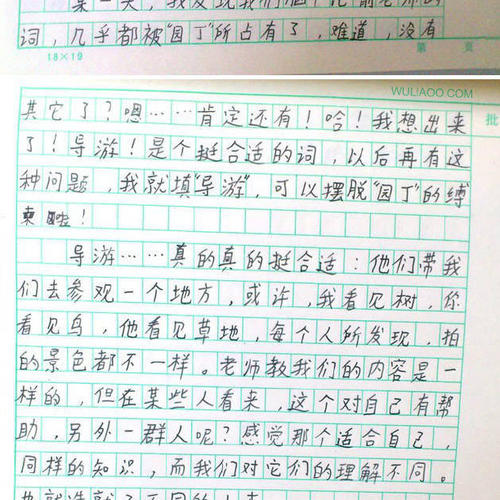 某一天，我发现我们
词，几乎都被“园丁”所占有了，难道，没有
18×19
第 页
WULIAOO.COM
其它了？嗯……肯定还有！哈！我想出来
了！导游！是个挺合适的词，以后再有这
种问题，我就填“导游”，可以摆脱“园丁”的缚
束啦！
导游……真的真的挺合适：他们带我
们去参观一个地方，或许，我看见树，你
看见鸟，他看见草地，每个人所发现，拍
的景色都不一样。老师教我们的内容是一
样的，但在某些人看来，这个对自己有帮
助，另外一群人呢？感觉那个适合自己，
同样的知识，而我们对它们的理解不同。
批